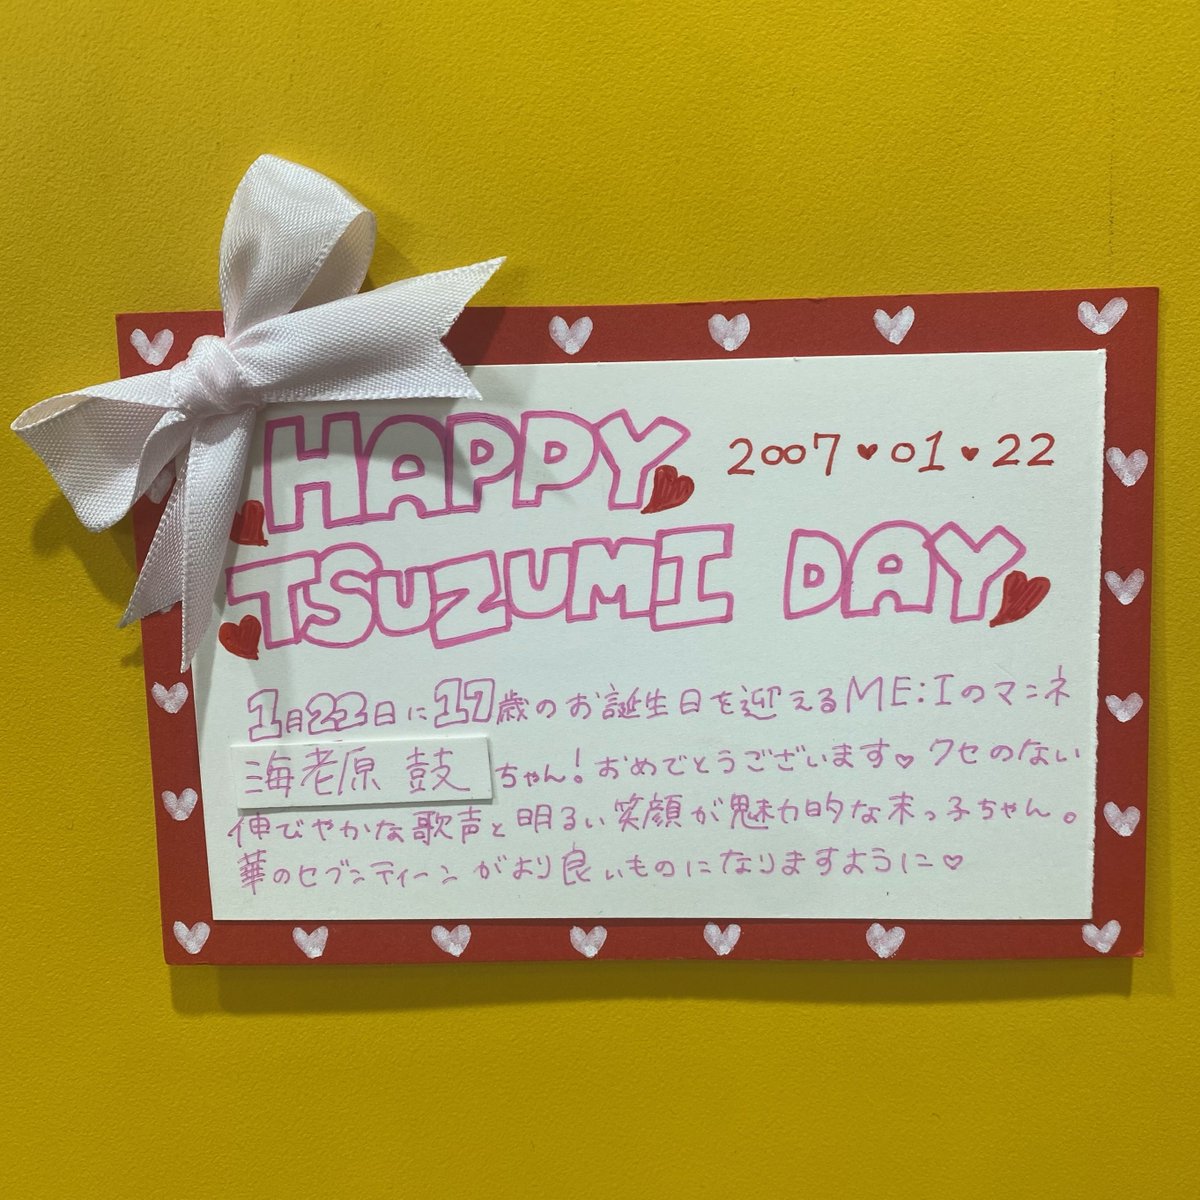 HAPPY
2007♥01♥22
TSUZUMI DAY
1月22日に17歳のお誕生日を迎えるME:Iのマンネ
海老原 鼓ちゃん!おめでとうございます♡クセのない
伸びやかな歌声と明るい笑顔が魅力的な末っ子ちゃん。
華のセブンティーンがより良いものになりますように♡